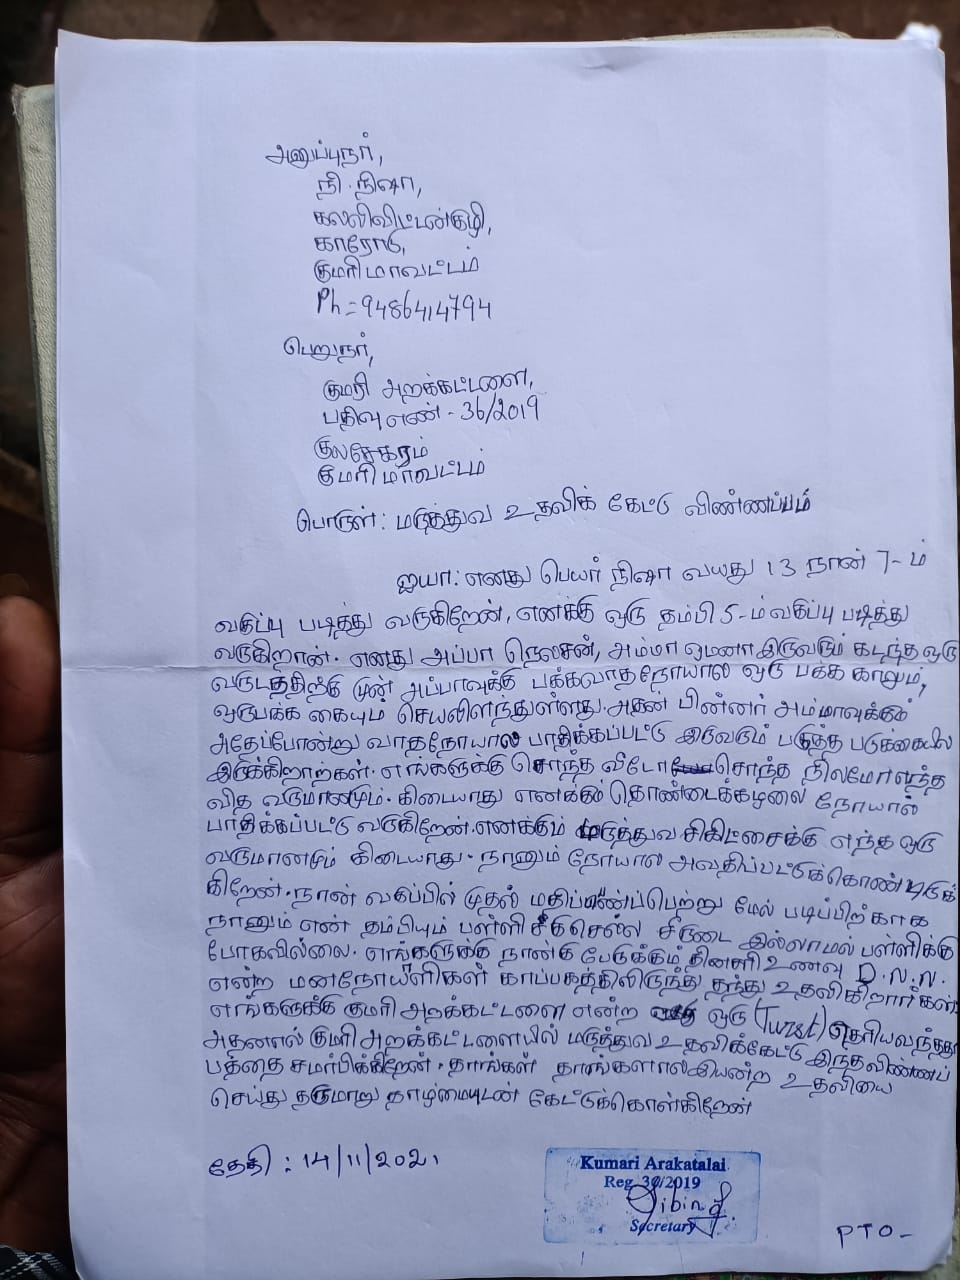 அனுப்புநர்,
நி. நிஷா,
கல்லிவிட்டான்குழி,
காரோடு,
குமரி மாவட்டம்
Ph = 9486414794
பெறுநர்,
குமரி அறக்கட்டளை,
பதிவு எண் - 36/2019
குலசேகரம்
குமரி மாவட்டம்
பொருள் : மருத்துவ உதவிக் கேட்டு விண்ணப்பம்
ஐயா : எனது பெயர் நிஷா வயது 13 நான் 7-ம்
வகுப்பு படித்து வருகிறேன், எனக்கு ஒரு தம்பி 5-ம் வகுப்பு படித்து
வருகிறான். எனது அப்பா நெல்சன், அம்மா ஓமனா இருவரும் கடந்த ஒரு
வருடத்திற்கு முன் அப்பாவுக்கு பக்கவாத நோயால் ஒரு பக்க காலும்,
ஒருபக்க கையும் செயலிழந்துள்ளது. அதன் பின்னர் அம்மாவுக்கும்
அதேப்போன்று வாதநோயால் பாதிக்கப்பட்டு இருவரும் படுத்த படுக்கையில்
இருக்கிறார்கள். எங்களுக்கு சொந்த வீடோ சொந்த நிலமோ எந்த
வித வருமானமும். கிடையாது எனக்கும் தொண்டைக்கழலை நோயால்
பாதிக்கப்பட்டு வருகிறேன். எனக்கும் மருத்துவ சிகிட்சைக்கு எந்த ஒரு
வருமானமும் கிடையாது. நானும் நோயால் அவதிப்பட்டுக்கொண்டிருக்
கிறேன். நான் வகுப்பில் முதல் மதிப்பெண்பெற்று மேல் படிப்பிற்காக
நானும் என் தம்பியும் பள்ளி செல்ல சீருடை இல்லாமல் பள்ளிக்கு
போகவில்லை. எங்களுக்கு நான்கு பேருக்கும் தினசரி உணவு D.N.N.
என்ற மனநோயாளிகள் காப்பகத்திலிருந்து தந்து உதவிகிறார்கள்
எங்களுக்கு குமரி அறக்கட்டளை என்ற ஒரு (Twrst) தெரியவந்தது
அதனால் குமரி அறக்கட்டளையில் மருத்துவ உதவிக்கேட்டு இந்த விண்ணப்
பத்தை சமர்பிக்கிறேன். தாங்கள் தாங்களால் இயன்ற உதவியை
செய்து தருமாறு தாழ்மையுடன் கேட்டுக்கொள்கிறேன்
தேதி : 14/11/2021
Kumari Arakatalai
Reg. 36/2019
Secretary
PTO-